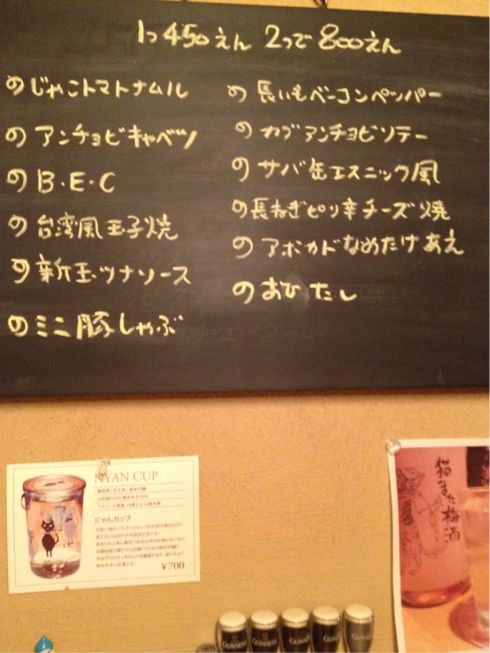 1つ450えん 2つで800えん
のじゃこトマトナムル
のアンチョビキャベツ
のB・E・C
の台湾風玉子焼
の新玉・ツナソース
のミニ豚しゃぶ
の長いもベーコンペッパー
のカブアンチョビソテー
のサバ缶エスニック風
の長ねぎピリ辛チーズ焼
のアボカドなめたけあえ
のおひたし
NYAN CUP
にゃんカップ
¥700
猫また梅酒
GUINNESS
GUINNESS
GUINNESS
GUINNESS